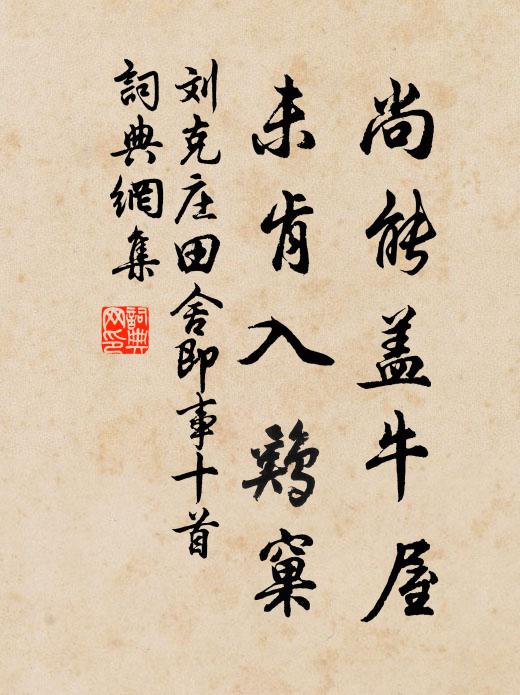 尚能盖牛屋
未肯入鷄窠
刘克庄田舍即事十首
詞典網集
詞典
网印